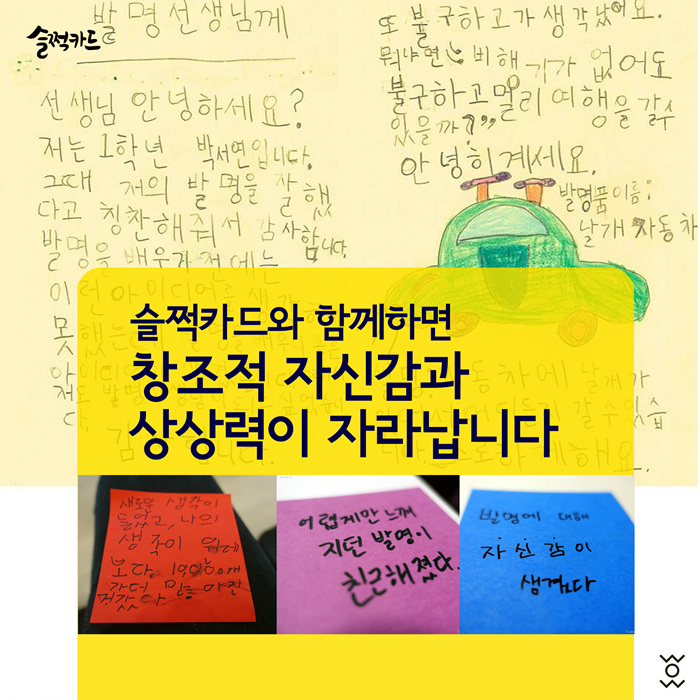 슬쩍카드
발명선생님께
선생님 안녕하세요?
저는 1학년 박서연입니다.
그때 저의 발명을 잘했
다고 칭찬해줘서 감사합니다.
발명을 배우기 전에는
이런 아이디어를 생각
못했는
또 불구하고가 생각났어요.
뭐냐면 비해기가 없어도
불구하고 멀리 여행을 갈수
있을까?"
안녕히계세요.
발명품이름:
날개 자동차
동차에 날개가
갈수있습
슬쩍카드와 함께하면
창조적 자신감과
상상력이 자라납니다
새로운 생각이
들었고, 나의
생각이 원래
보다 1900개
가 더 많아진
것 같았다
어렵게만 느껴
지던 발명이
친근해졌다.
발명에 대해
자신감이
생겼다